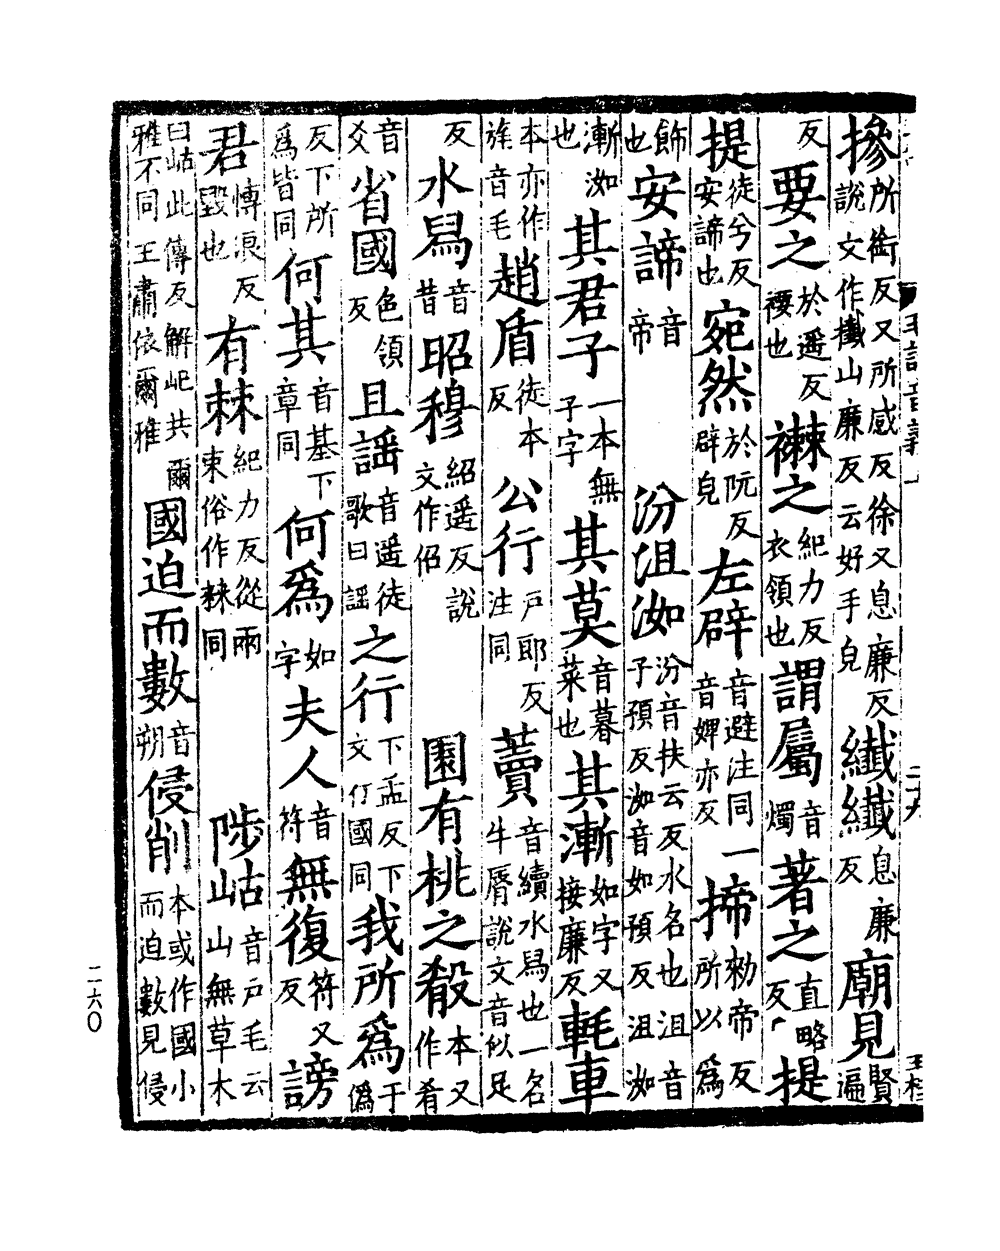 摻所銜反又所感反徐又息廉反說文作攕山廉反云好手皃纖纖息廉反廟見賢遍
反要之於遥反褸也襋之紀力反衣領也謂屬音燭著之直略反提
提徒兮反安諦也宛然於阮反辟皃左辟音避注同一音婢亦反揥勑帝反所以爲
飾也安諦音帝汾沮洳汾音扶云反水名也沮音子預反洳音如預反沮洳
漸洳也其君子一本無子字其莫音暮菜也其漸如字又接廉反軞車
本亦作旄音毛趙盾徒本反公行戶郎反注同藚音續水舄也一名牛脣說文音似足
反水舄音昔昭穆紹遥反說文作佋園有桃之殽本又作肴
音爻省國色領反且謡音遥徒歌曰謡之行下孟反下文行國同我所爲于僞
反下所爲皆同何其音基下章同何爲如字夫人音符無復符又反謗
君慱浪反毀也有棘紀力反從兩束俗作棘同陟岵音戶毛云山無草木
曰岵此傳反解屺共爾雅不同王肅依爾雅國迫而數音朔侵削本或作國小而迫數見侵
毛詩音義上
二十九
二六〇